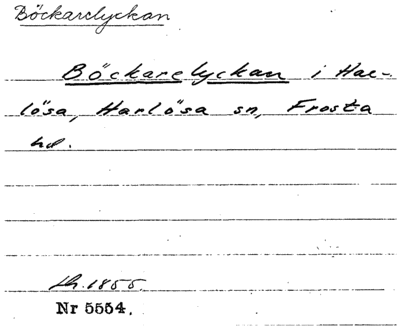 Böckarelyckan
Böckarelyckan i Har-
lösa, Harlösa sn, Frosta
hd.
Lh. 1855.
Nr 5554.